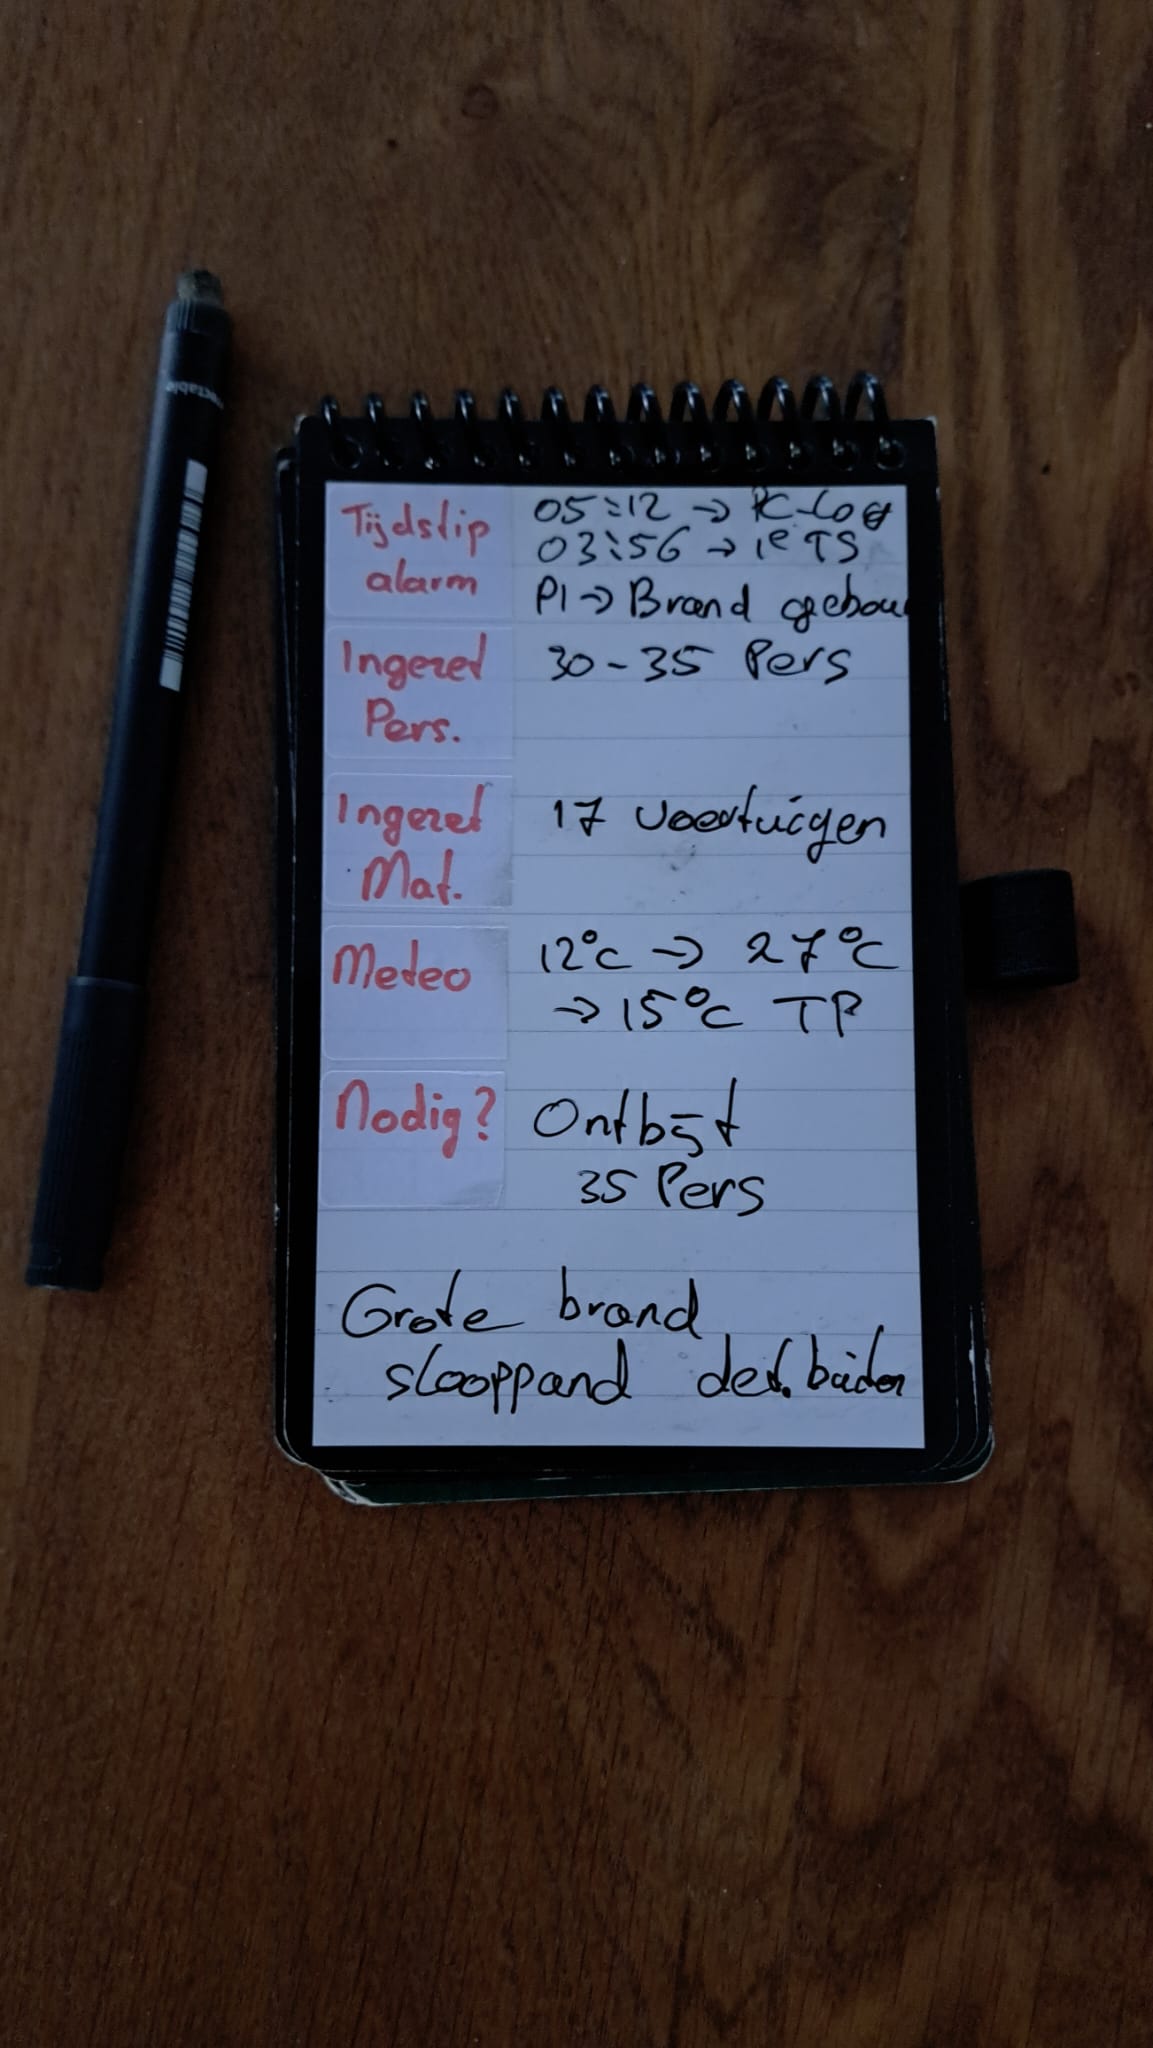 Tijdstip
alarm
05:12 → PC-Log
03:56 → 1e TS
P1 → Brand gebou
Ingezet
Pers.
30-35 Pers
Ingezet
Mat.
17 voertuigen
Meteo
12°C → 27°C
→ 15°C TP
Nodig?
Ontbijt
35 Pers
Grote brand
slooppand def. buiten